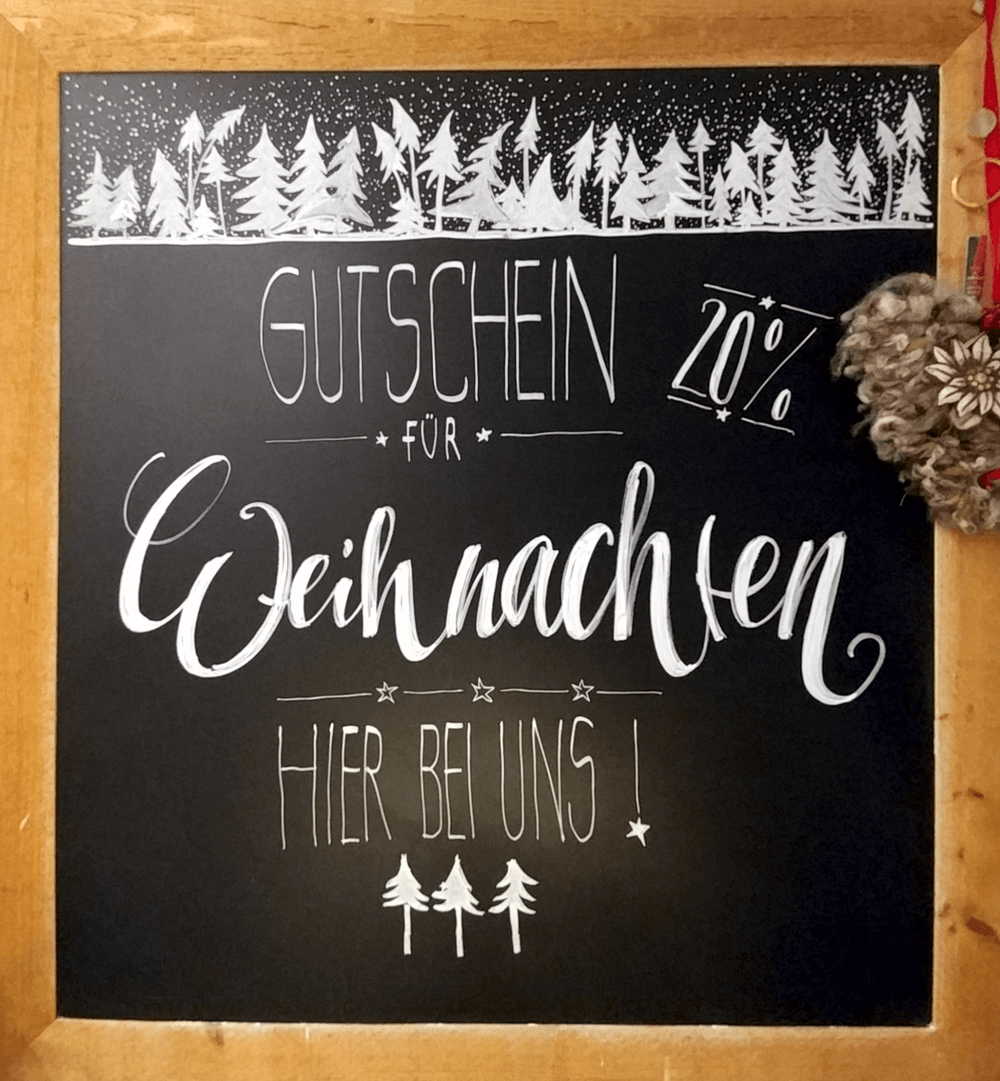 GUTSCHEIN
20%
FÜR
Weihnachten
HIER BEI UNS!